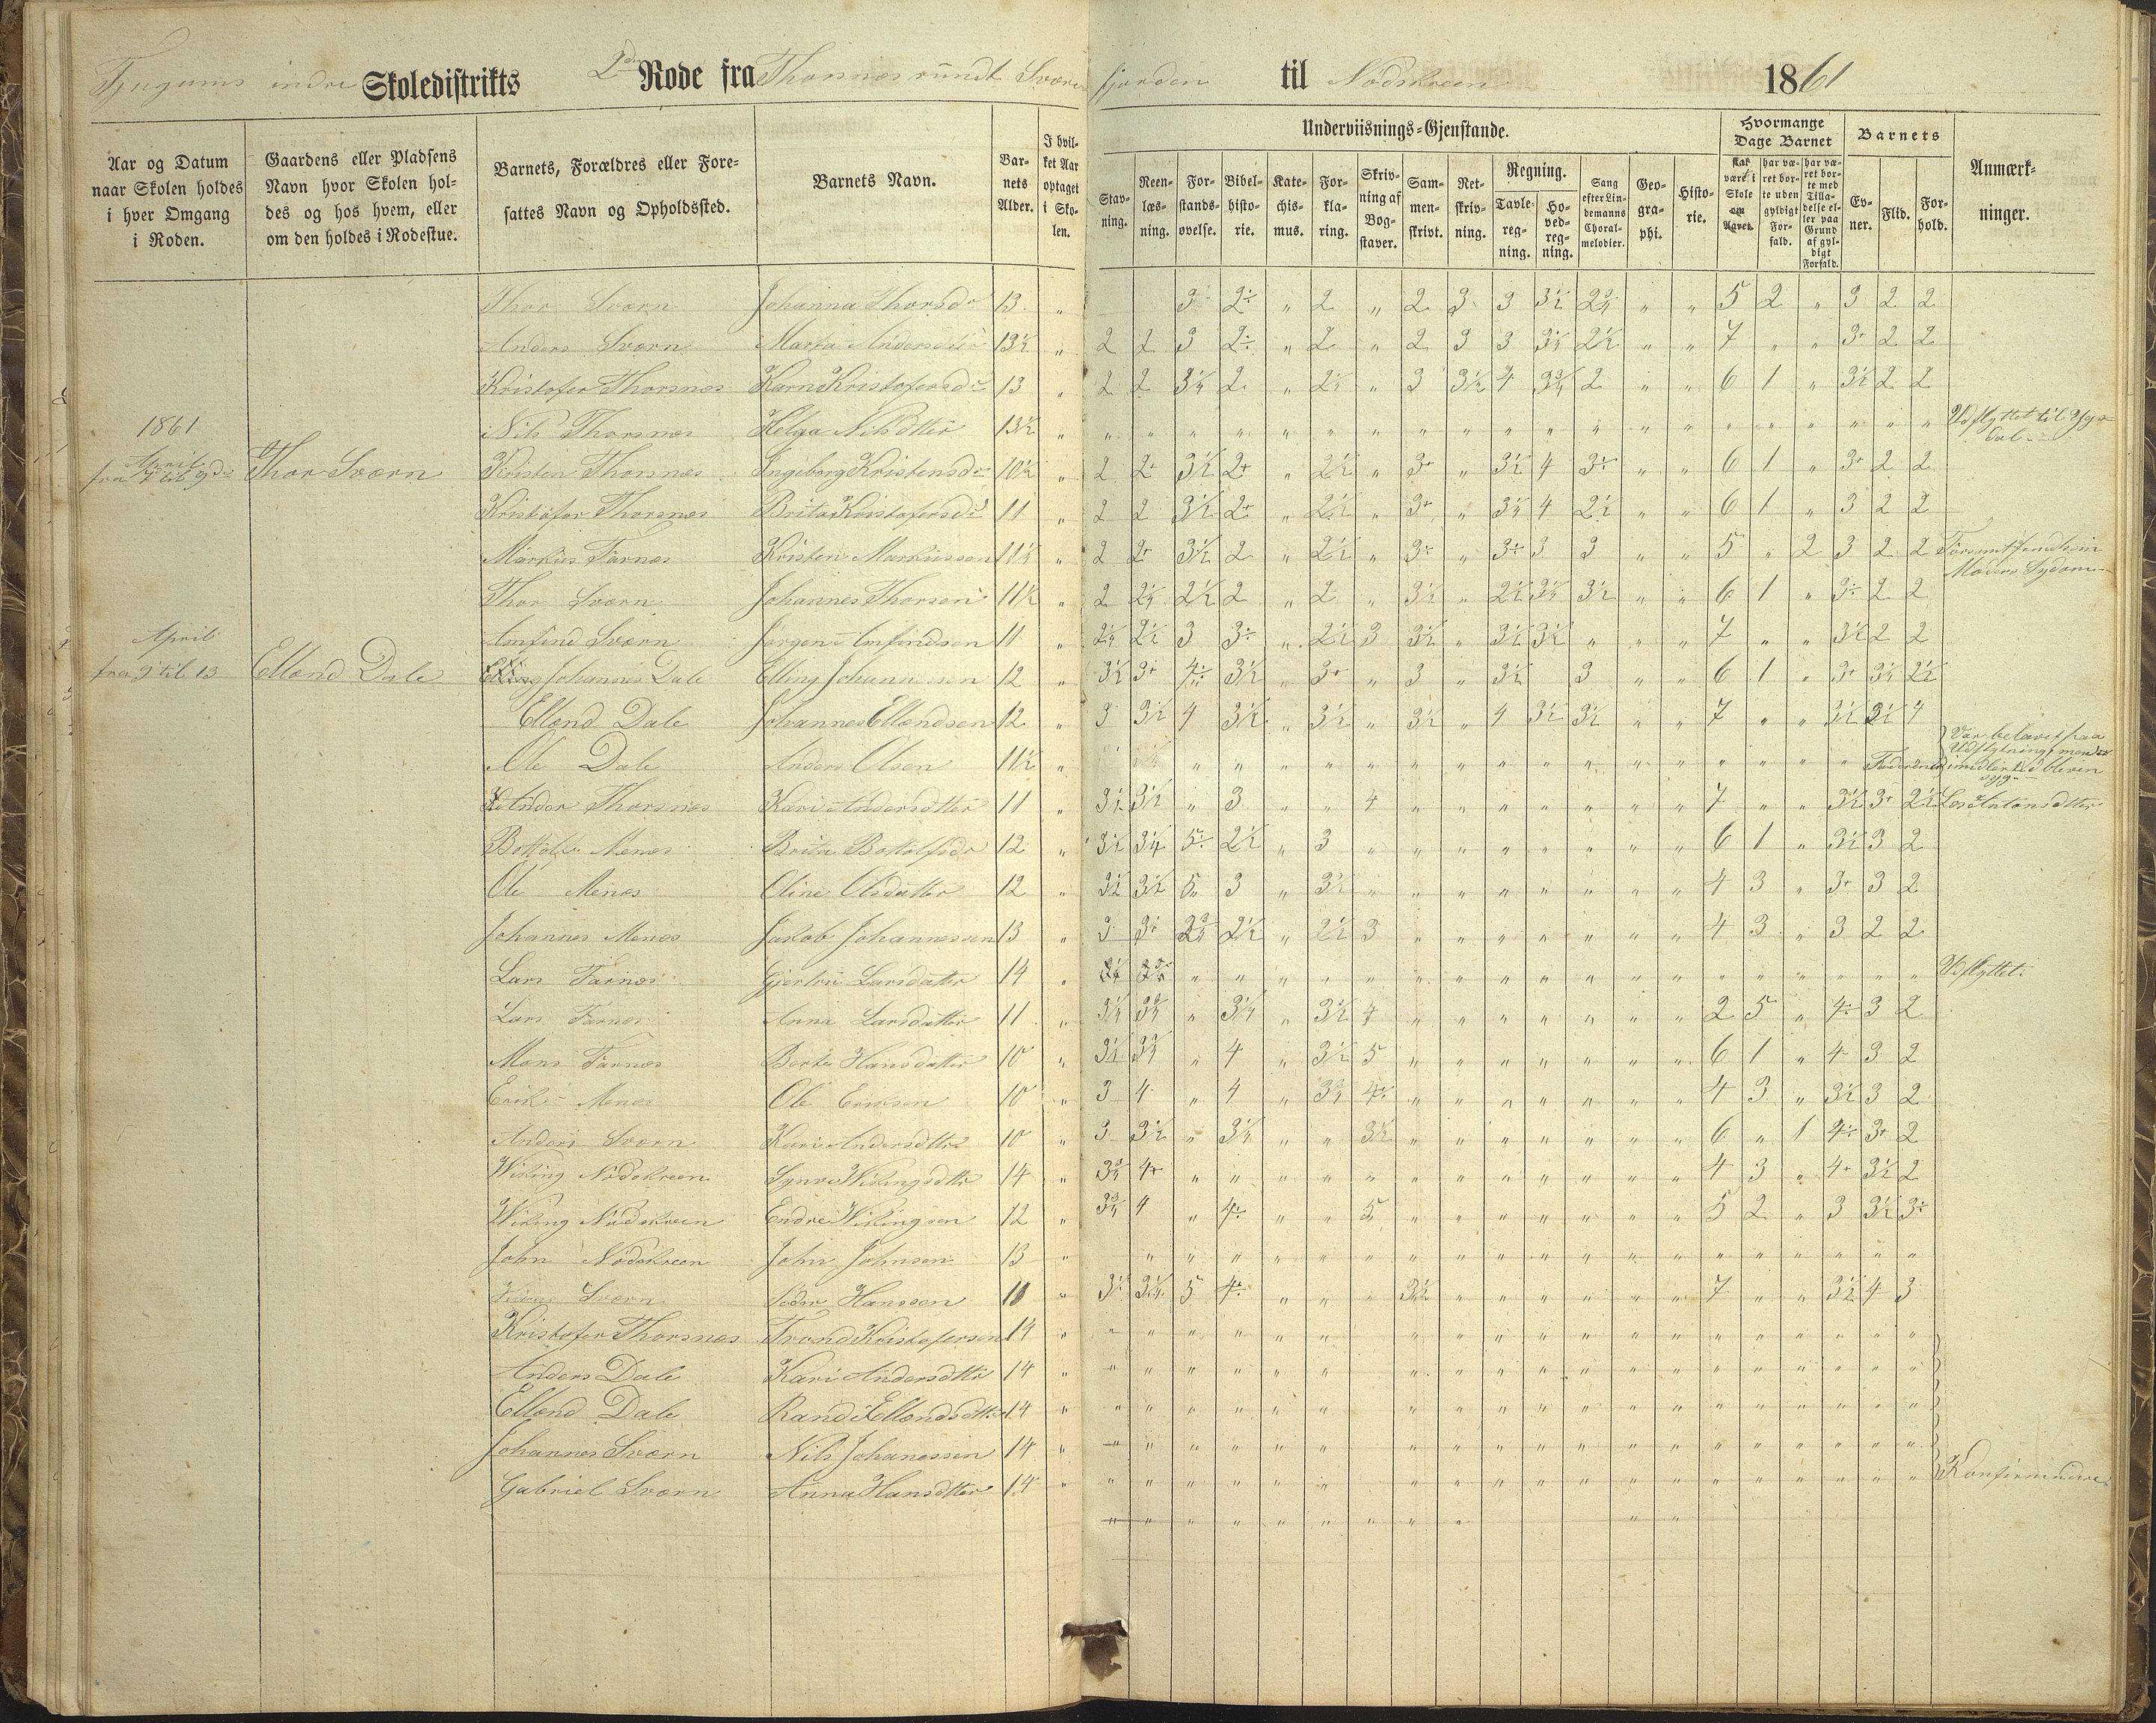 Tjugums indre Skoledistrikts 2den Rode fra Thorsnæs rundt Sværefjorden til Nødskreen 1861
Aar og Datum naar Skolen holdes i hver Omgang i Roden.
Gaardens eller Pladsens Navn hvor Skolen holdes og hos hvem, eller om den holdes i Rodestue.
Barnets, Forældres eller Foresattes Navn og Opholdssted.
Barnets Navn.
Barnets Alder.
I hvilket Aar optaget i Skolen.
Underviisnings-Gjenstande.
Stavning.
Reenlæsning.
Forstandsøvelse.
Bibelhistorie.
Katechismus.
Forklaring.
Skrivning af Bogstaver.
Sammenskrivt.
Retskrivning.
Regning.
Tavleregning.
Hovedregning.
Sang efter Lindemanns Choralmelodier.
Geographi.
Historie.
Hvormange Dage Barnet
skal være i Skole om Aaret.
har været borte uden gyldigt Forfald.
har været borte med Tilladelse eller paa Grund af gyldigt Forfald.
Barnets
Evner.
Flid.
Forhold.
Anmærkninger.
Thor Sværn Johanna Thorsdr 13 " 3 2÷ " 2 " 2 3 3 3½ 2¾ " " 5 2 " 3 2 2
Anders Sværn Marta Andersdtr 13½ " 2 2 3 2÷ " 2 " 2 3 3 3¼ 2½ " " 7 " " 3+ 2 2
Kristofer Thorsnæs Karn Kristofersdr 13 " 2 2 3¼ 2 " 2½ " 3 3½ 4 3¾ 2 " " 6 1 " 3½ 2 2
1861
Nils Thorsnæs Helga Nilsdtter 13½ " Udflyttet til
April
fra 7 til 9de Thor Sværn Kristen Thorsnæs Ingeborg Kristensdr 10½ " 2 2+ 3½ 2+ " 2½ " 3+ " 3½ 4 3÷ " " 6 1 " 3+ 2 2
Kristofer Thorsnæs Brita Kristofersdr 11 " 2 2 3½ 2+ " 2½ " 3+ " 3¼ 4 2½ " " 6 1 " 3 2 2
Markus Farnæs Kristen Markussen 11½ " 2 2+ 3½ 2 " 2½ " 3÷ " 3÷ 3 3 " " 5 " 2 3 2 2
Moders Sygdom
Thor Sværn Johannes Thorsen 11½ " 2 2¼ 2½ 2 " 2 " 3½ " 2½ 3¼ 3½ " " 6 1 " 3÷ 2 2
April
Amfind Sværn Jørgen Amfindsen 11 " 2¼ 2½ 3 3÷ " 2½ 3 3½ " 3½ 3½ " " " 7 " " 3½ 2 2
fra 9 til 13 Ellend Dale Johannes Dale Elling Johannessen 12 " 3½ 3+ 4÷ 3½ " 3+ " 3 " 3½ 3 " " 6 1 " 3+ 3¼ 2½
Ellend Dale Johannes Ellendsen 12 " 3 3½ 4 3½ " 3½ " 3½ " 4 3½ 3½ " " 7 " " 3½ 3½ 4
Ole Dale Anders Olsen 11½ " Var belavet paa Udflytning men er imidlertid bleven syg
Ander Thorsnæs Kari Andersdtter 11 " 3½ 3½ " 3 " " 4 " " " " " " " 7 " " 3½ 3+ 2½ Læs Antonsdtter
Bottolf Menæs Brita Bottolfsdr 12 " 3½ 3¼ 5÷ 2½ " 3 " " " " " " " " 6 1 " 3½ 3 2
Ole Menæs Oline Olsdatter 12 " 3½ 3½ 5 3 " 3½ " " " " " " " " 4 3 " 3+ 3 2
Johannes Menæs Jakob Johannessen 13 " 3 3+ 2¾ 2½ " 2½ 3 " " " " " " " 4 3 " 3 2 2
Lars Farnæs Gjertru Larsdatter 14 " Udflyttet.
Lars Farnæs Anna Larsdatter 11 " 3¼ 3¾ " 3¼ " 3½ 4 " " " " " " " 2 5 " 4÷ 3 2
Mons Farnæs Berte Hansdatter 10 " 3½ 3¾ " 4 " 3½ 5 " " " " " " " 6 1 " 4 3 2
Erik Menæs Ole Eriksen 10 " 3 4 " 4 " 3¾ 4÷ " " " " " " " 4 3 " 3½ 3 2
Anders Sværn Kari Andersdtter 10 " 3 3½ " 3¼ " " 3½ " " " " " " " 6 " 1 4÷ 3+ 2
Wiking Nødskreen Synve Wikingsdtr 14 " 3¾ 4+ " " " " " " " " " " " " 4 3 " 4+ 3½ 2
Wiking Nødskreen Endre Wikingsen 12 " 3¾ 4 " 4÷ " " 5 " " " " " " " 5 2 " 3 3½ 3÷
John Nødskreen John Johnsen 13 "
Sværn Peder Hanssen 10 " 3½ 3¼ 5 4÷ " " " 3½ " " " " " " 7 " " 3½ 4 3
Kristofer Thorsnæs Trond Kristofersen 14 "
Anders Dale Kari Andersdtter 14 "
Ellend Dale Randi Ellendsdtter 14 "
Johannes Sværn Nils Johanessen 14 "
Gabriel Sværn Anna Hansdtter 14 " Konfirmerede